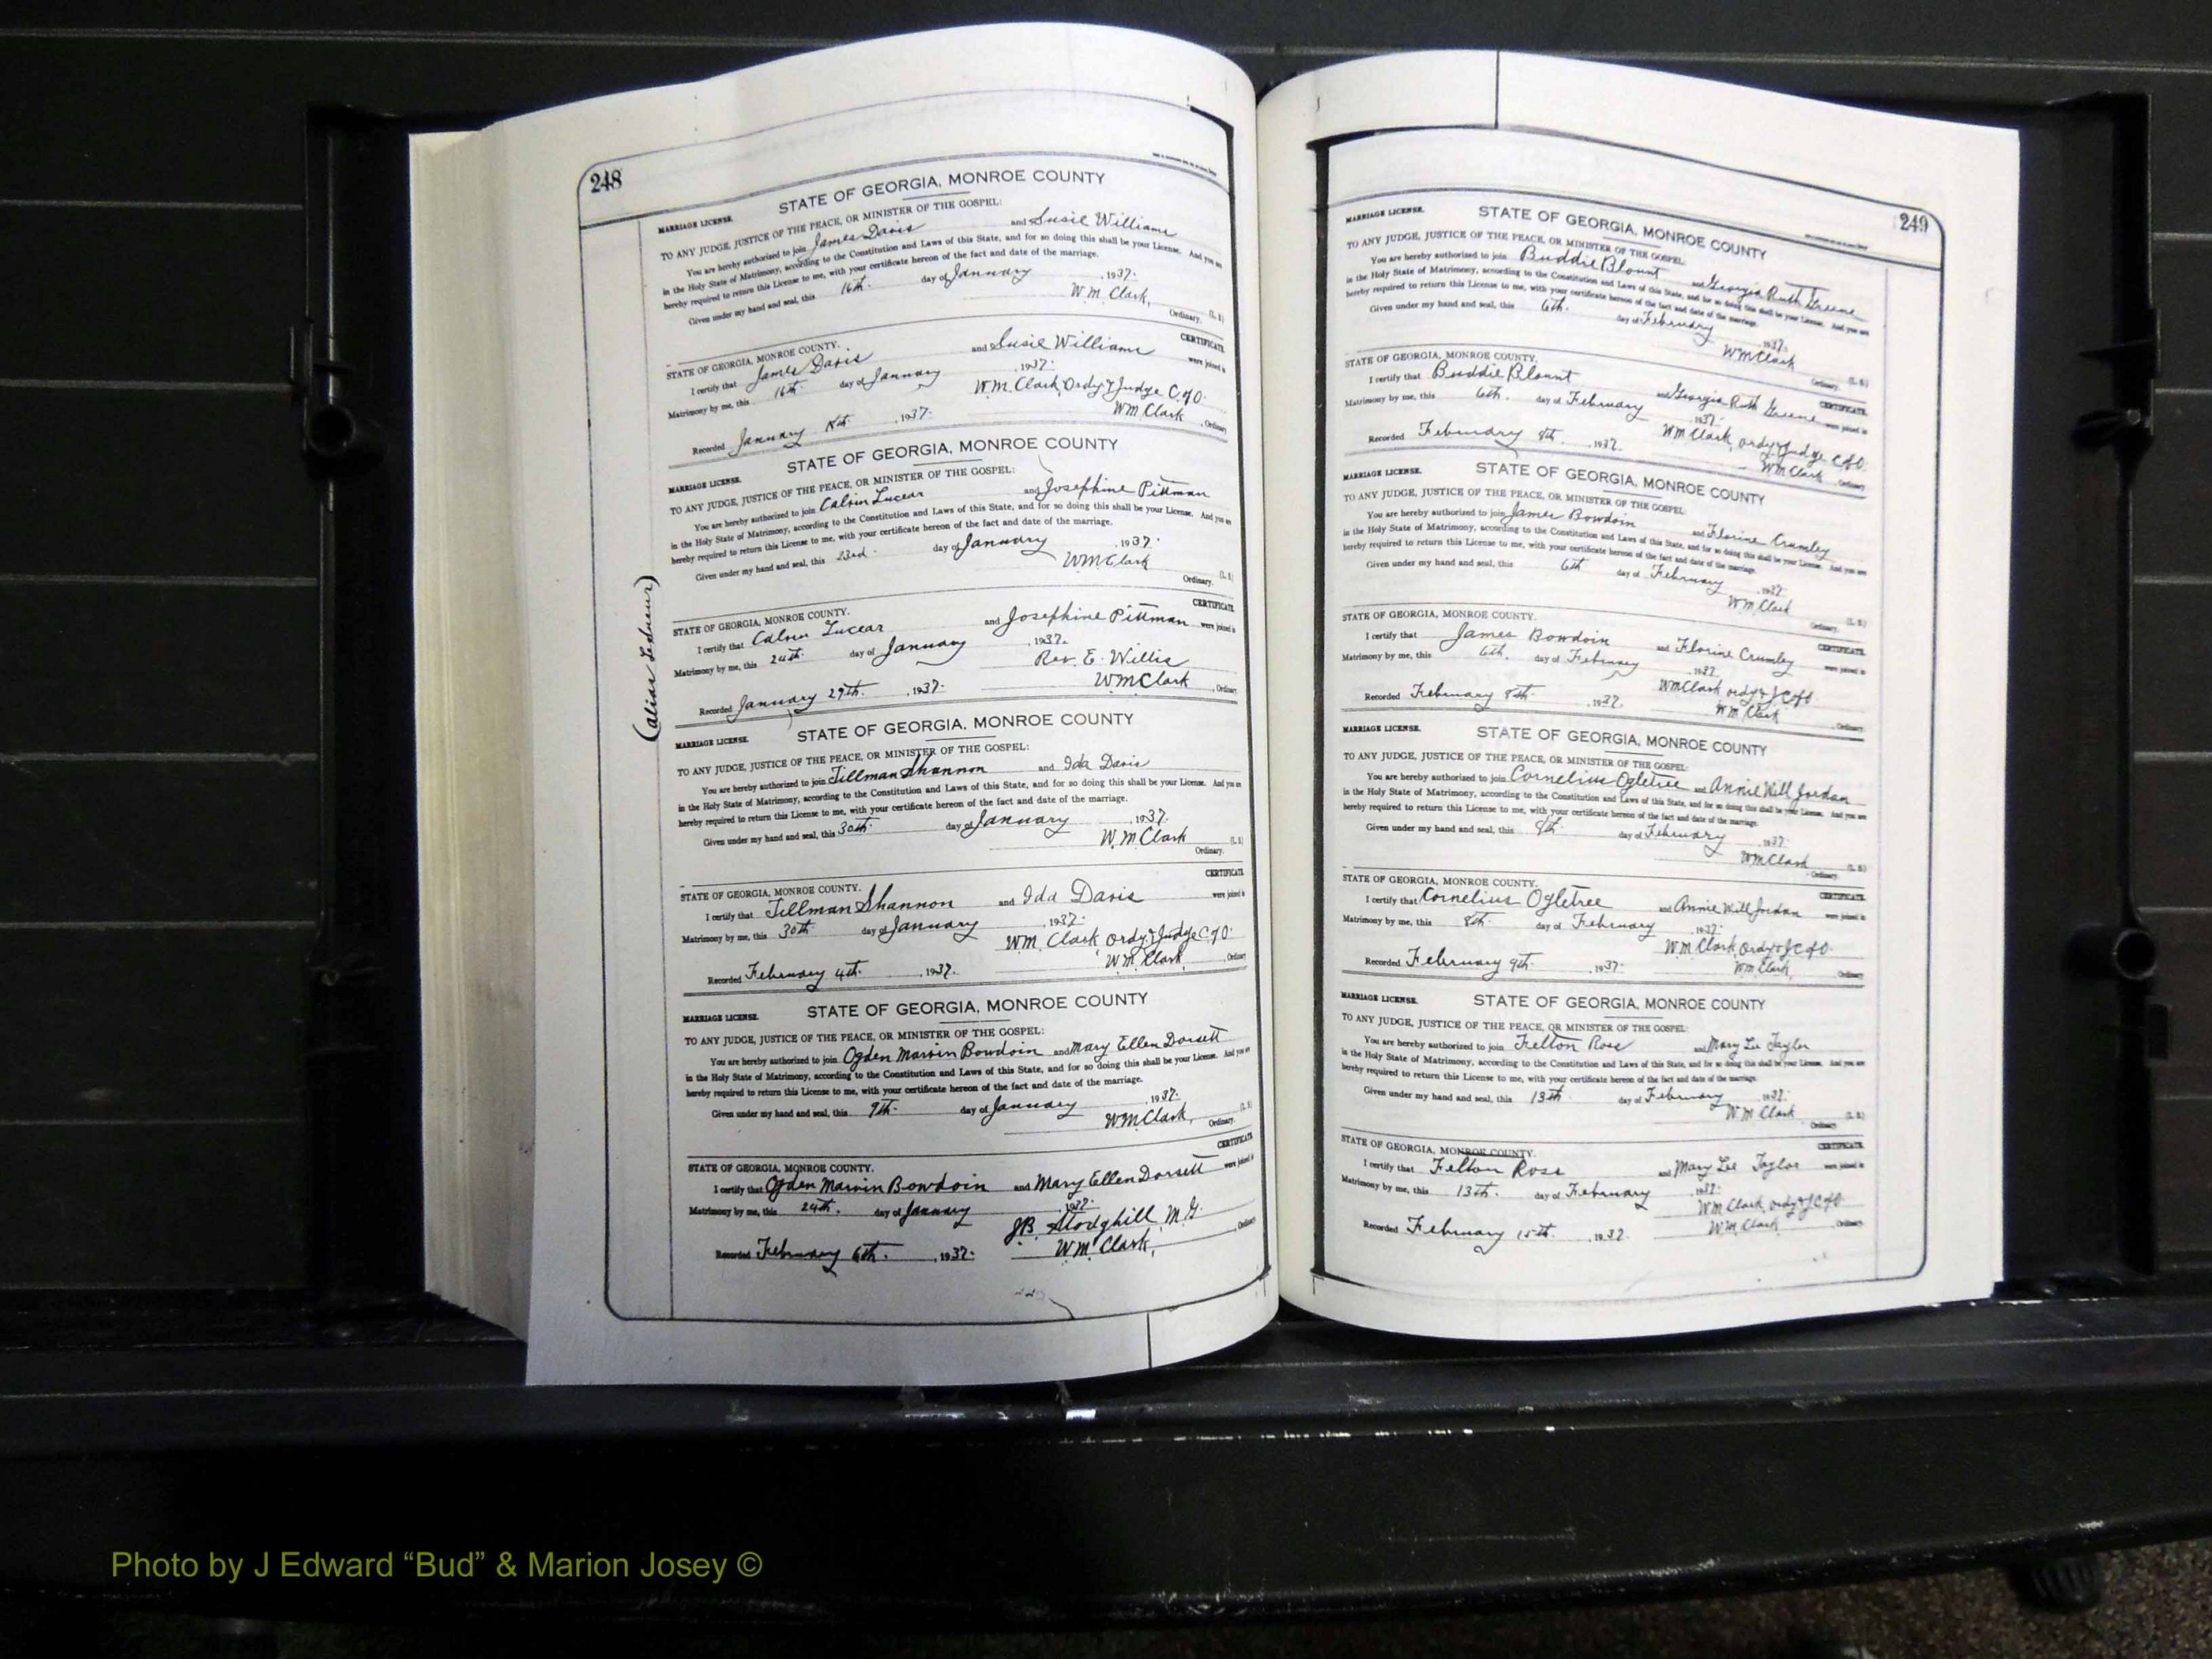 248
STATE OF GEORGIA, MONROE COUNTY
MARRIAGE LICENSE.
TO ANY JUDGE, JUSTICE OF THE PEACE, OR MINISTER OF THE GOSPEL:
You are hereby authorized to join James Davis and Susie Williams
in the Holy State of Matrimony, according to the Constitution and Laws of this State, and for so doing this shall be your License. And you are
hereby required to return this License to me, with your certificate hereon of the fact and date of the marriage.
Given under my hand and seal, this 16th. day of January, 1937.
W.M. Clark,
Ordinary. (L. S.)
CERTIFICATE.
STATE OF GEORGIA, MONROE COUNTY.
I certify that James Davis and Susie Williams were joined in
Matrimony by me, this 16th. day of January, 1937.
W.M. Clark, Ordy & Judge C.of O.
Recorded January 1937. WM Clark, Ordinary
STATE OF GEORGIA, MONROE COUNTY
MARRIAGE LICENSE.
TO ANY JUDGE, JUSTICE OF THE PEACE, OR MINISTER OF THE GOSPEL:
You are hereby authorized to join Calvin Lucear and Josephine Pittman
in the Holy State of Matrimony, according to the Constitution and Laws of this State, and for so doing this shall be your License. And you are
hereby required to return this License to me, with your certificate hereon of the fact and date of the marriage.
Given under my hand and seal, this 23rd. day of January, 1937.
WM Clark
Ordinary. (L. S.)
CERTIFICATE.
STATE OF GEORGIA, MONROE COUNTY.
I certify that Calvin Lucear and Josephine Pittman were joined in
Matrimony by me, this 24th. day of January, 1937.
Rev. E. Willis
Recorded January 29th. 1937. WM Clark, Ordinary
(alias
STATE OF GEORGIA, MONROE COUNTY
MARRIAGE LICENSE.
TO ANY JUDGE, JUSTICE OF THE PEACE, OR MINISTER OF THE GOSPEL:
You are hereby authorized to join Tillman Shannon and Ida Davis
in the Holy State of Matrimony, according to the Constitution and Laws of this State, and for so doing this shall be your License. And you are
hereby required to return this License to me, with your certificate hereon of the fact and date of the marriage.
Given under my hand and seal, this 30th. day of January, 1937.
W.M. Clark (L. S.)
Ordinary.
CERTIFICATE.
STATE OF GEORGIA, MONROE COUNTY.
I certify that Tillman Shannon and Ida Davis were joined in
Matrimony by me, this 30th day of January, 1937.
WM. Clark, Ordy. & Judge C of O.
Recorded February 4th. 1937. W.M. Clark, Ordinary
STATE OF GEORGIA, MONROE COUNTY
MARRIAGE LICENSE.
TO ANY JUDGE, JUSTICE OF THE PEACE, OR MINISTER OF THE GOSPEL:
You are hereby authorized to join Ogden Marvin Bowdoin and Mary Ellen Dorsett
in the Holy State of Matrimony, according to the Constitution and Laws of this State, and for so doing this shall be your License. And you are
hereby required to return this License to me, with your certificate hereon of the fact and date of the marriage.
Given under my hand and seal, this 9th. day of January, 1937.
WM Clark, (L. S.)
Ordinary.
CERTIFICATE.
STATE OF GEORGIA, MONROE COUNTY.
I certify that Ogden Marvin Bowdoin and Mary Ellen Dorsett were joined in
Matrimony by me, this 24th. day of January, 1937.
J.B. Stodghill, M.G.
Recorded February 6th. 1937. W.M. Clark, Ordinary
249
STATE OF GEORGIA, MONROE COUNTY
MARRIAGE LICENSE.
TO ANY JUDGE, JUSTICE OF THE PEACE, OR MINISTER OF THE GOSPEL:
You are hereby authorized to join Buddie Blount and Georgia Ruth Greene
in the Holy State of Matrimony, according to the Constitution and Laws of this State, and for so doing this shall be your License. And you are
hereby required to return this License to me, with your certificate hereon of the fact and date of the marriage.
Given under my hand and seal, this 6th. day of February, 1937.
WM Clark
Ordinary. (L. S.)
CERTIFICATE.
STATE OF GEORGIA, MONROE COUNTY.
I certify that Buddie Blount and Georgia Ruth Greene were joined in
Matrimony by me, this 6th. day of February, 1937.
WM Clark, ordy & Judge C of O.
Recorded February 8th. 1937. WM Clark, Ordinary
STATE OF GEORGIA, MONROE COUNTY
MARRIAGE LICENSE.
TO ANY JUDGE, JUSTICE OF THE PEACE, OR MINISTER OF THE GOSPEL:
You are hereby authorized to join James Bowdoin and Florine Crumley
in the Holy State of Matrimony, according to the Constitution and Laws of this State, and for so doing this shall be your License. And you are
hereby required to return this License to me, with your certificate hereon of the fact and date of the marriage.
Given under my hand and seal, this 6th day of February, 1937.
WM Clark
Ordinary. (L. S.)
CERTIFICATE.
STATE OF GEORGIA, MONROE COUNTY.
I certify that James Bowdoin and Florine Crumley were joined in
Matrimony by me, this 6th. day of February, 1937.
WM Clark ordy & J C of O.
Recorded February 8th. 1937. WM Clark, Ordinary.
STATE OF GEORGIA, MONROE COUNTY
MARRIAGE LICENSE.
TO ANY JUDGE, JUSTICE OF THE PEACE, OR MINISTER OF THE GOSPEL:
You are hereby authorized to join Cornelius Ogletree and Annie Will Jordan
in the Holy State of Matrimony, according to the Constitution and Laws of this State, and for so doing this shall be your License. And you are
hereby required to return this License to me, with your certificate hereon of the fact and date of the marriage.
Given under my hand and seal, this 8th. day of February, 1937.
WM Clark (L. S.)
Ordinary.
CERTIFICATE.
STATE OF GEORGIA, MONROE COUNTY.
I certify that Cornelius Ogletree and Annie Will Jordan were joined in
Matrimony by me, this 8th. day of February, 1937.
WM Clark, Ordy & J C of O.
Recorded February 9th. 1937. WM Clark, Ordinary.
STATE OF GEORGIA, MONROE COUNTY
MARRIAGE LICENSE.
TO ANY JUDGE, JUSTICE OF THE PEACE, OR MINISTER OF THE GOSPEL:
You are hereby authorized to join Felton Ross and Mary Lee Taylor
in the Holy State of Matrimony, according to the Constitution and Laws of this State, and for so doing this shall be your License. And you are
hereby required to return this License to me, with your certificate hereon of the fact and date of the marriage.
Given under my hand and seal, this 13th. day of February, 1937.
W.M. Clark (L. S.)
Ordinary.
CERTIFICATE.
STATE OF GEORGIA, MONROE COUNTY.
I certify that Felton Ross and Mary Lee Taylor were joined in
Matrimony by me, this 13th. day of February, 1937.
WM Clark, ordy & J C of O
Recorded February 15th. 1937. WM. Clark, Ordinary.
Photo by J Edward “Bud” & Marion Josey ©